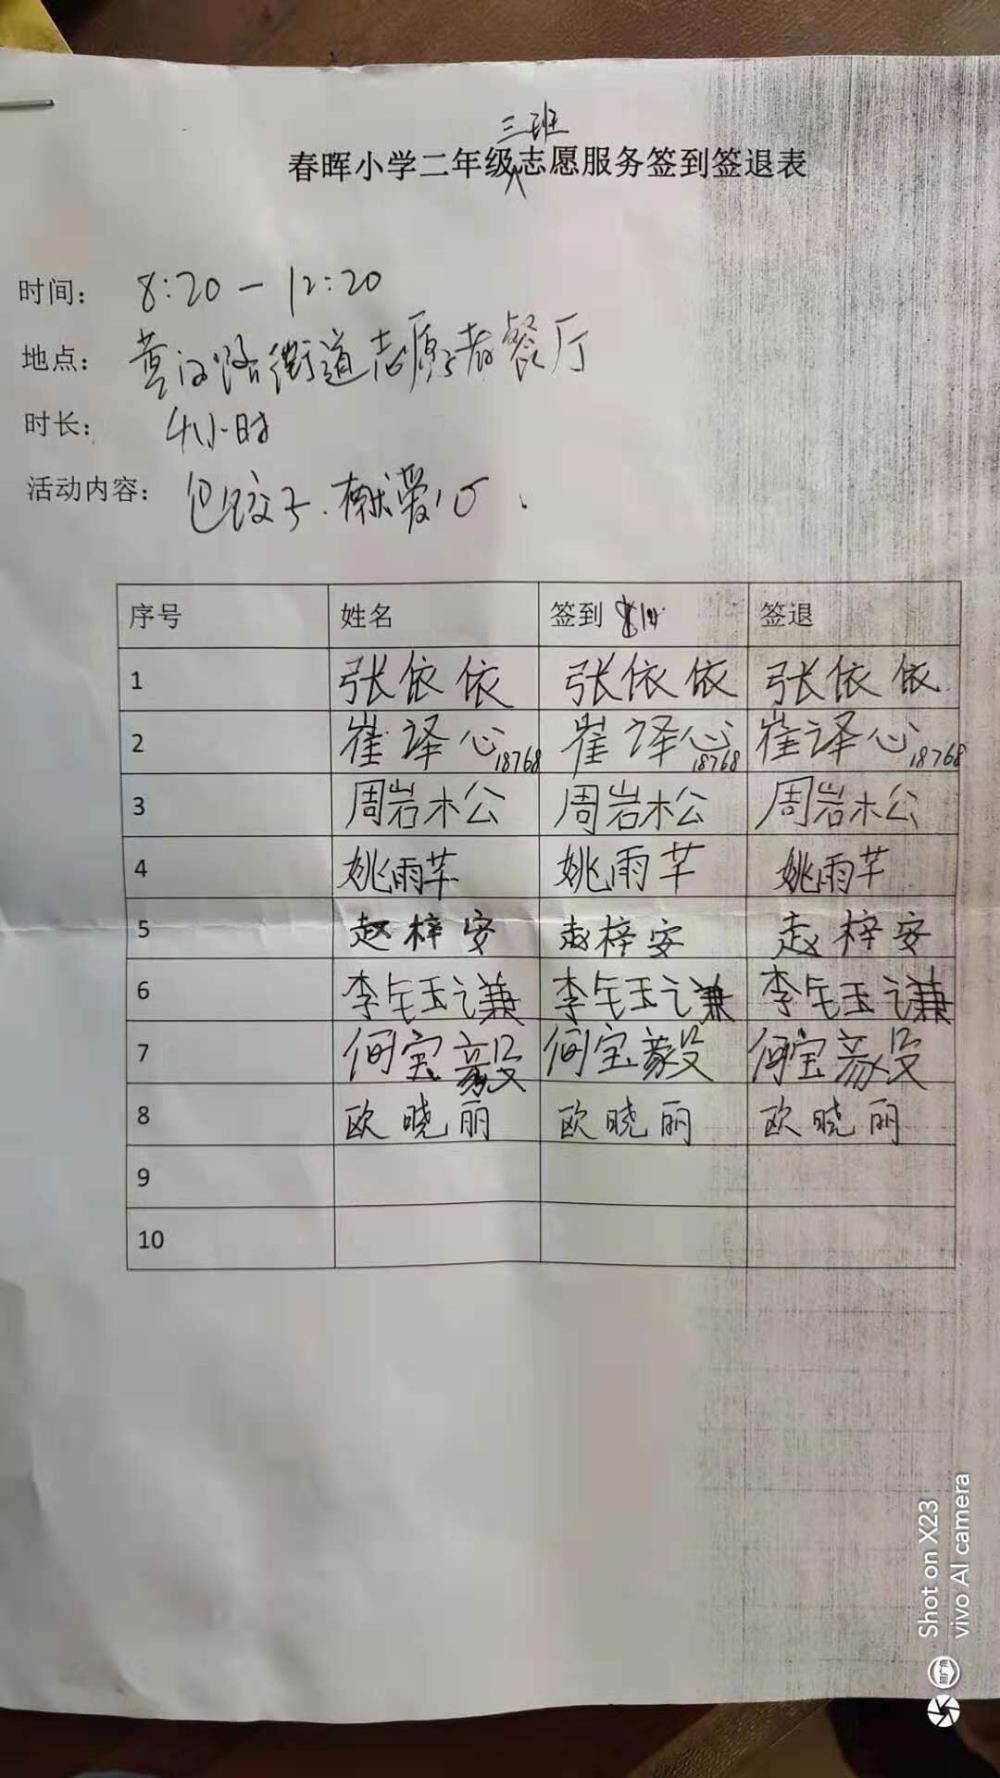 三班
春晖小学二年级志愿服务签到签退表
时间： 8:20 — 12:20
地点： 黄河路街道志愿者餐厅
时长： 4小时
活动内容： 包饺子.献爱心.
序号 姓名 签到 签退
1 张依依 张依依 张依依
2 崔译心18768 崔译心18768 崔译心18768
3 周岩松 周岩松 周岩松
4 姚雨芊 姚雨芊 姚雨芊
5 赵梓安 赵梓安 赵梓安
6 李钰谦 李钰谦 李钰谦
7 何宝毅 何宝毅 何宝毅
8 欧晓丽 欧晓丽 欧晓丽
9
10
Shot on X23
vivo AI camera